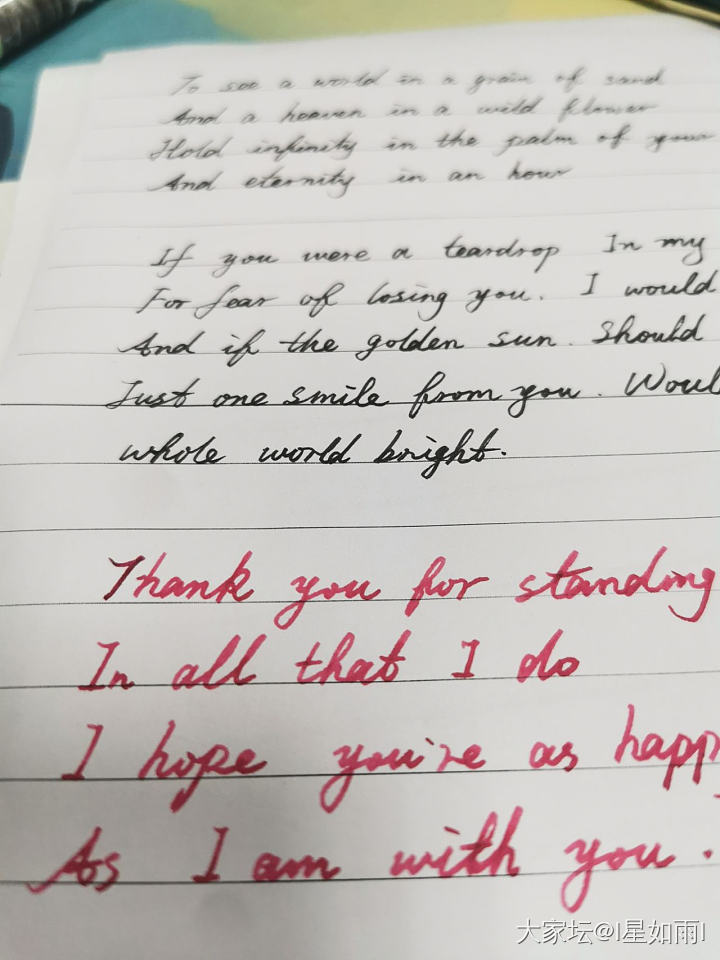 To see a world in a grain of sand
And a heaven in a wild flower
Hold infinity in the palm of your
And eternity in an hour
If you were a teardrop In my
For fear of losing you. I would
And if the golden sun. Should
Just one smile from you. Woul
whole world bright.
Thank you for standing
In all that I do
I hope you're as happ
As I am with you.
大家坛@I星如雨I